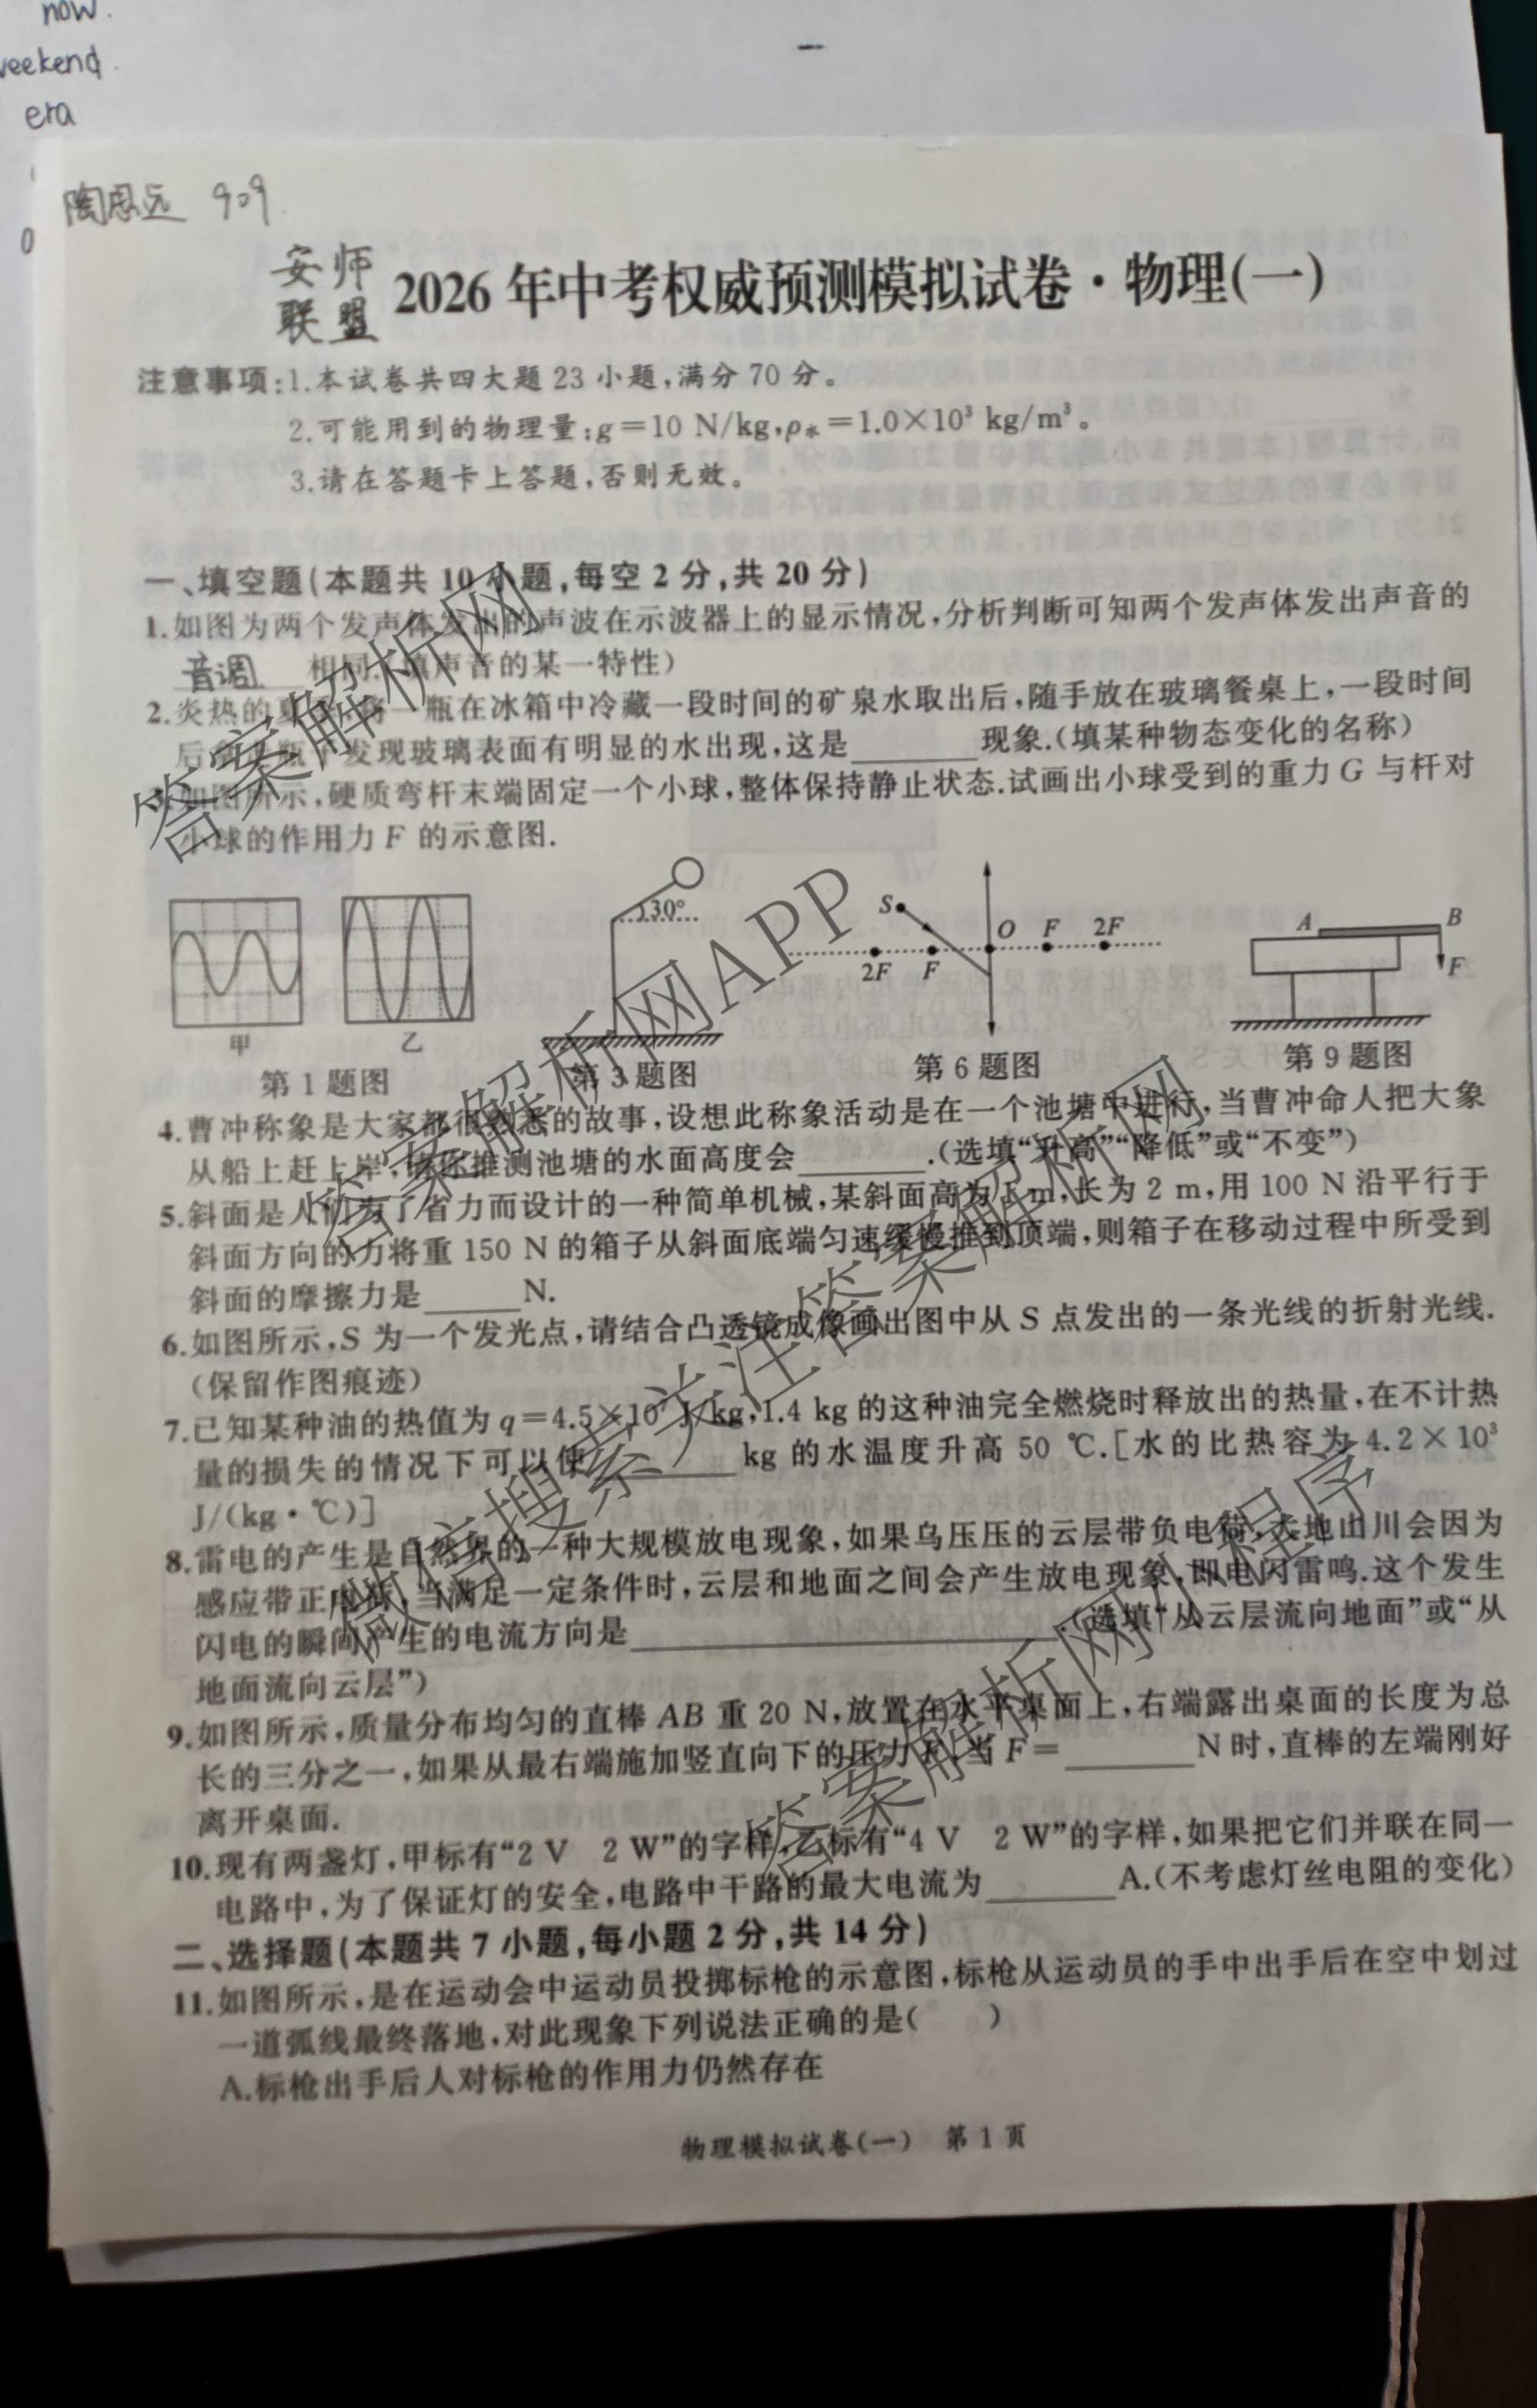 now.
weekend.
era
陶思远 909
安师
联盟
2026年中考权威预测模拟试卷·物理(一)
注意事项:1.本试卷共四大题23小题,满分70分。
2.可能用到的物理量:g=10 N/kg,ρ水=1.0×10³ kg/m³。
3.请在答题卡上答题,否则无效。
一、填空题(本题共10小题,每空2分,共20分)
1.如图为两个发声体发出的声波在示波器上的显示情况,分析判断可知两个发声体发出声音的
音调 相同.(填声音的某一特性)
2.炎热的夏 一瓶在冰箱中冷藏一段时间的矿泉水取出后,随手放在玻璃餐桌上,一段时间
后 瓶 发现玻璃表面有明显的水出现,这是______现象.(填某种物态变化的名称)
3.如图所示,硬质弯杆末端固定一个小球,整体保持静止状态.试画出小球受到的重力G与杆对
小球的作用力F的示意图.
甲
乙
第1题图
30°
第3题图
S
O F 2F
2F F
第6题图
A B
F
第9题图
4.曹冲称象是大家都很熟悉的故事,设想此称象活动是在一个池塘中进行,当曹冲命人把大象
从船上赶上岸,请你推测池塘的水面高度会______.(选填“升高”“降低”或“不变”)
5.斜面是人们为了省力而设计的一种简单机械,某斜面高为1 m,长为2 m,用100 N沿平行于
斜面方向的力将重150 N的箱子从斜面底端匀速缓慢推到顶端,则箱子在移动过程中所受到
斜面的摩擦力是_____N.
6.如图所示,S为一个发光点,请结合凸透镜成像画出图中从S点发出的一条光线的折射光线.
(保留作图痕迹)
7.已知某种油的热值为q=4.5×10⁷ J/kg,1.4 kg的这种油完全燃烧时释放出的热量,在不计热
量的损失的情况下可以使______kg的水温度升高50 ℃.[水的比热容为4.2×10³
J/(kg·℃)]
8.雷电的产生是自然界的一种大规模放电现象,如果乌压压的云层带负电荷,大地山川会因为
感应带正电荷,当满足一定条件时,云层和地面之间会产生放电现象,即电闪雷鸣.这个发生
闪电的瞬间产生的电流方向是____________________.(选填“从云层流向地面”或“从
地面流向云层”)
9.如图所示,质量分布均匀的直棒AB重20 N,放置在水平桌面上,右端露出桌面的长度为总
长的三分之一,如果从最右端施加竖直向下的压力F,当F=______N时,直棒的左端刚好
离开桌面.
10.现有两盏灯,甲标有“2 V 2 W”的字样,乙标有“4 V 2 W”的字样,如果把它们并联在同一
电路中,为了保证灯的安全,电路中干路的最大电流为______A.(不考虑灯丝电阻的变化)
二、选择题(本题共7小题,每小题2分,共14分)
11.如图所示,是在运动会中运动员投掷标枪的示意图,标枪从运动员的手中出手后在空中划过
一道弧线最终落地,对此现象下列说法正确的是( )
A.标枪出手后人对标枪的作用力仍然存在
物理模拟试卷(一) 第1页
答案解析网
答案解析网APP
微信搜索关注答案解析网
答案解析网小程序